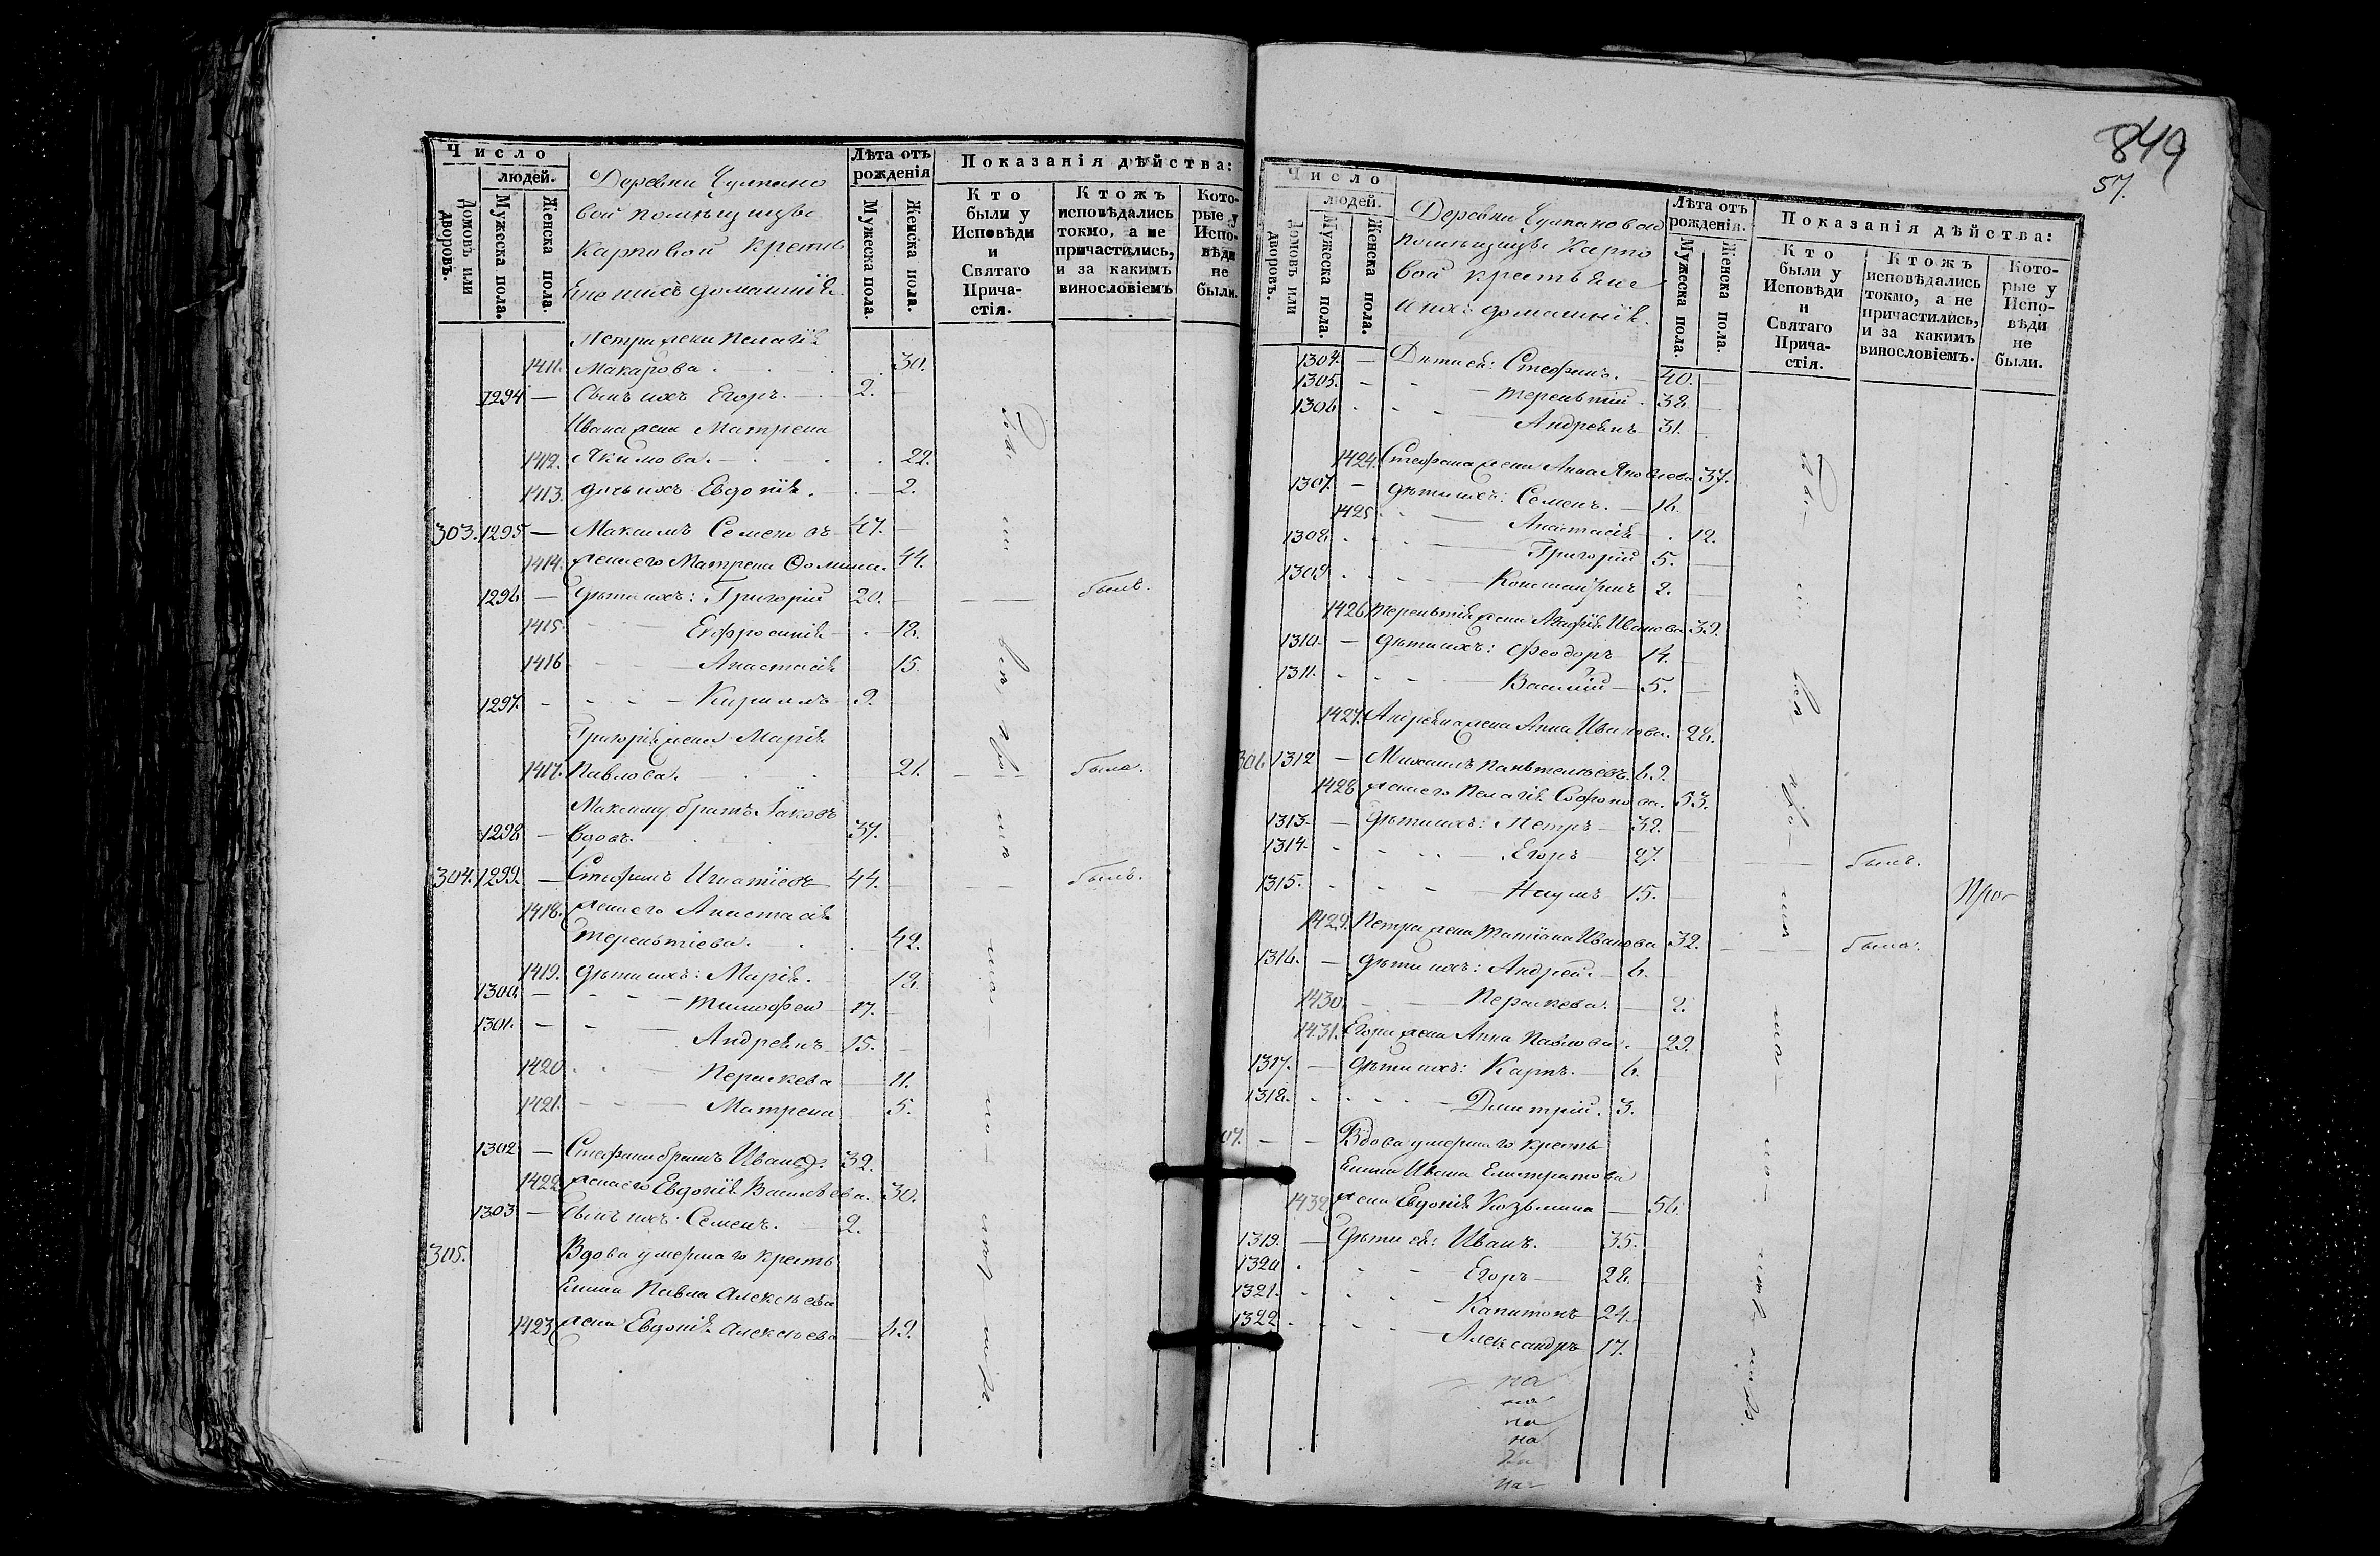 Число
людей.
Домовъ или дворовъ.
Мужеска пола.
Женска пола.
Деревни Чулпано
вой помѣщицы
Карповой крестья
Яне и ихъ домашнія
Лѣта отъ рожденія
Мужеска пола.
Женска пола.
Показанія дѣйства:
Кто были у Исповѣди и Святаго Прича-стія.
Ктожъ исповѣдались токмо, а не причастились, и за какимъ винословіемъ
Кото-рые у Испо-вѣди не были.
Петра жена Пелагія
1411. Макарова. 30.
1294 — Сынъ ихъ Егоръ. — 2.
Ивана жена Матрена
1412. Якимова. 22.
1413. дочь ихъ Евдокія. — 2.
303. 1295 — Максимъ Семеновъ 47.
1414. жена его Матрена Фомина. 44.
1296 — дѣти ихъ: Григорій 20. — былъ.
1415. Евфросинія — 18.
1416 Анастасія 15.
1297. Кириллъ 9.
Григорія жена Марія
1417. Павлова. 21. — была.
Максиму братъ Іаковъ
1298 — вдовъ. 37.
304. 1299. — Стефанъ Игнатіевъ 44. — былъ.
1418. жена его Анастасія
Терентіева. 42.
1419. дѣти ихъ: Марія. 18.
1300. — Тимофей 17.
1301. — Андреянъ 15.
1420 Параскева 11.
1421. Матрена 5.
1302 — Стефана братъ Иванъ. 32.
1422 жена его Евдокія Васильева. 30.
1303 — Сынъ ихъ Семенъ. 2.
305. Вдова умершаго кресть
янина Павла Алексѣева
1423 жена Евдокія Алексѣева — 69.
849
57.
Число
людей.
Домовъ или дворовъ.
Мужеска пола.
Женска пола.
Деревни Чулпановой
помѣщицы Карпо
вой крестьяне
и ихъ домашнія.
Лѣта отъ рожденія.
Мужеска пола.
Женска пола.
Показанія дѣйства:
Кто были у Исповѣди и Святаго Прича-стія.
Ктожъ исповѣдались токмо, а не причастились, и за какимъ винословіемъ.
Кото-рые у Испо-вѣди не были.
1304. — Дѣти ея: Стефанъ. 40.
1305. — Терентій. 38.
1306. Андреянъ 31.
1424. Стефана жена Анна Яковлева 37.
1307. — дѣти ихъ: Семенъ. — 16.
1425 Анастасія 12.
1308. Григорій 5.
1309. Константинъ 2.
1426. Терентія жена Ивановa 39.
1310. — дѣти ихъ: Феодоръ 14.
1311. Василій 5.
1427. Андреяна жена Анна Иванова. 28.
306. 1312 — Михаилъ Пантелеевъ. 69.
1428 жена его Пелагія Софонова. 53.
1313. — дѣти ихъ: Петръ — 32.
1314. Егоръ 27. — былъ.
1315. Наумъ 15.
1429. Петра жена Татіана Иванова 32. — была.
1316. — дѣти ихъ: Андрей. — 6.
1430 Параскева. — 2.
1431. Егора жена Анна Павлова. — 29.
1317. — дѣти ихъ: Карпъ. — 6.
1318. Дмитрій. 3.
07. — Вдова умершаго кресть
янина Ивана Елистратова
1432 жена Евдокія Козьмина — 56.
1319. — дѣти ея: Иванъ. — 35.
1320 Егоръ — 28.
1321. Капитонъ 24.
1322 Александръ 17.
на
на
на
на
на
на